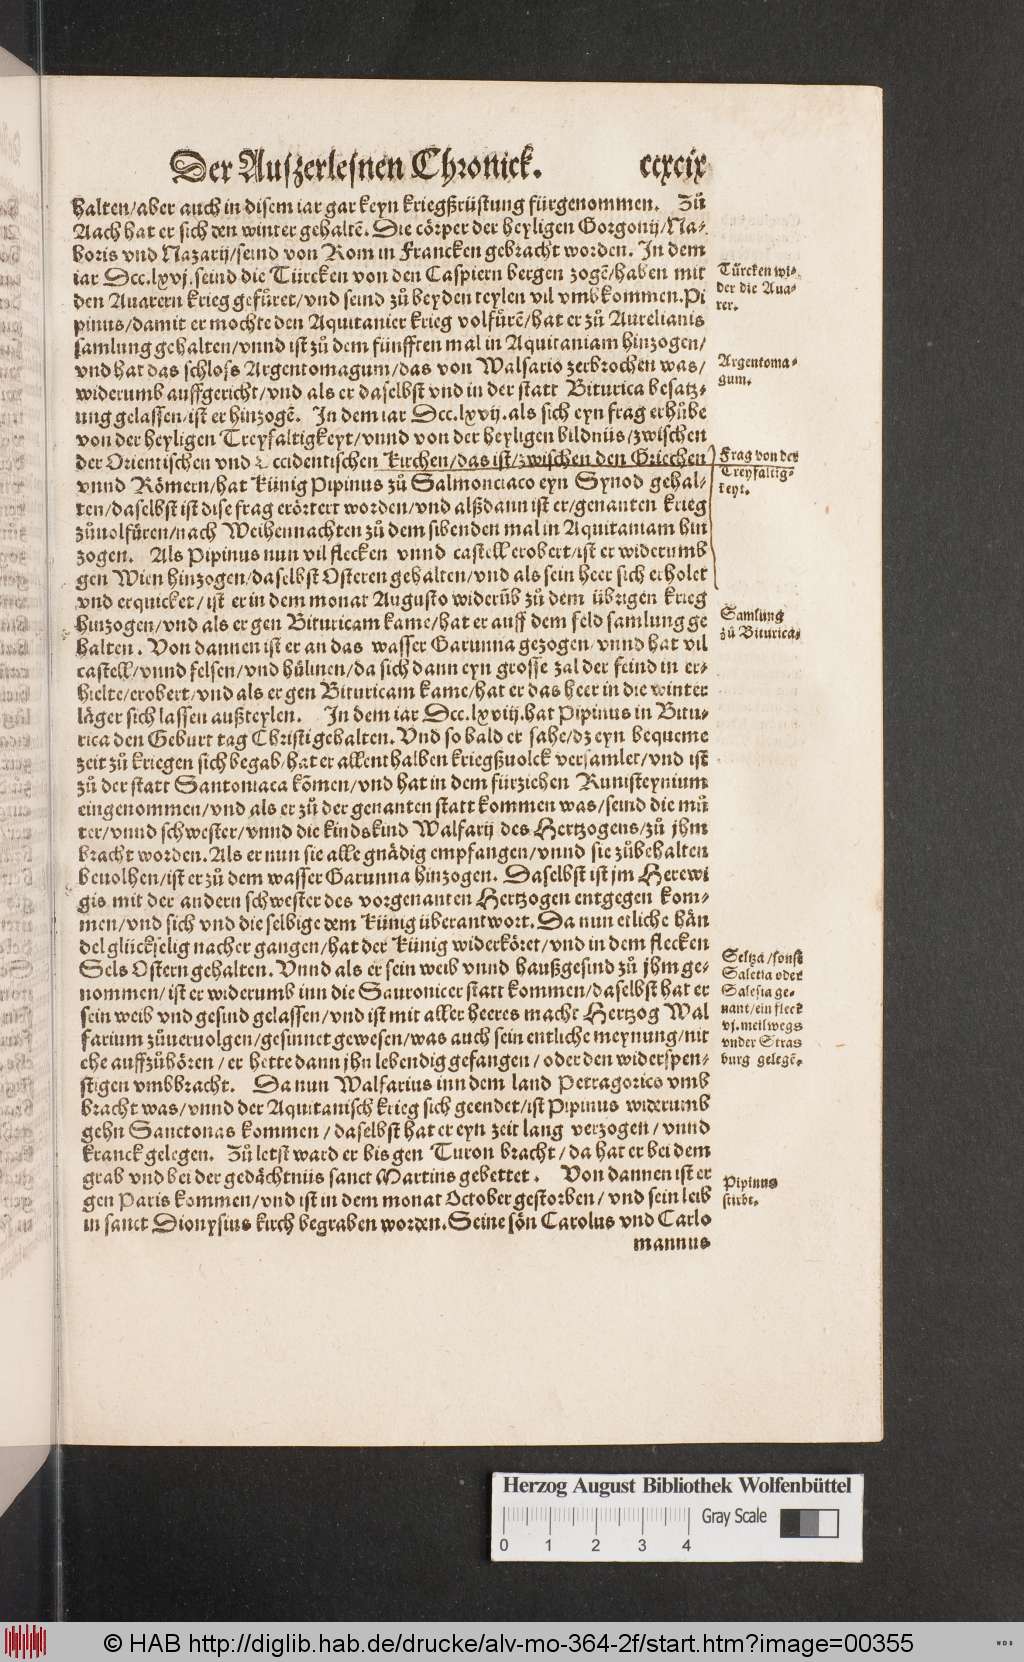 Der Auszerlesnen Chronick. ccxcix
halten/aber auch in disem iar gar keyn kriegßrüstung fürgenommen. Zů
Aach hat er sich den winter gehaltẽ. Die cörper der heyligen Gorgonij/Na-
boris vnd Nazarij/seind von Rom in Francken gebracht worden. In dem
iar Dcc.lxvj. seind die Türcken von den Caspiern bergen zogẽ/haben mit
den Auarern krieg gefůret/vnd seind zů beyden teylen vil vmbkommen. Pi
pinus/damit er mochte den Aquitanier krieg volfůrẽ/hat er zů Aurelianis
samlung gehalten/vnnd ist zů dem fünfften mal in Aquitaniam hinzogen/
vnd hat das schloss Argentomagum/das von Walfario zerbrochen was/
widerumb auffgericht/vnd als er daselbst vnd in der statt Biturica besatz-
ung gelassen/ist er hinzogẽ. In dem iar Dcc.lxvij. als sich eyn frag erhübe
von der heyligen Treyfaltigkeyt/vnnd von der heyligen bildnüs/zwischen
der Orientischen vnd Occidentischen Kirchen/das ist/zwischen den Griechen
vnnd Römern/hat Künig Pipinus zů Salmonciaco eyn Synod gehal-
ten/daselbst ist dise frag erörtert worden/vnd alßdann ist er/genanten krieg
zůuolfüren/nach Weihennachten zů dem sibenden mal in Aquitaniam hin
zogen. Als Pipinus nun vil flecken vnnd castell erobert/ist er widerumb
gen Wien hinzogen/daselbst Osteren gehalten/vnd als sein heer sich erholet
vnd erquicket/ist er in dem monat Augusto widerüb zů dem übrigen krieg
hinzogen/vnd als er gen Bituricam kame/hat er auff dem feld samlung ge
halten. Von dannen ist er an das wasser Garunna gezogen/vnnd hat vil
castell/vnnd felsen/vnd hülinen/da sich dann eyn grosse zal der feind in er-
hielte/erobert/vnd als er gen Bituricam kame/hat er das heer in die winter
läger sich lassen außteylen. In dem iar Dcc.lxviij. hat Pipinus in Bitu-
rica den Geburt tag Christi gehalten. Vnd so bald er sahe/dz eyn bequeme
zeit zů kriegen sich begab/hat er allenthalben kriegßuolck versamlet/vnd ist
zů der statt Santoniaca kõmen/vnd hat in dem fürziehen Runisteynium
eingenommen/vnd als er zů der genanten statt kommen was/seind die mů
ter/vnnd schwester/vnnd die kindskind Walfarij des Hertzogens/zů jhm
bracht worden. Als er nun sie alle gnädig empfangen/vnnd sie zůbehalten
beuolhen/ist er zů dem wasser Garunna hinzogen. Daselbst ist jm Herewi
gis mit der andern schwester des vorgenanten Hertzogen entgegen kom-
men/vnd sich vnd die selbige dem Künig überantwort. Da nun etliche hän
del glückselig nacher gangen/hat der Künig widerköret/vnd in dem flecken
Sels Ostern gehalten. Vnnd als er sein weib vnnd haußgesind zů jhm ge-
nommen/ist er widerumb inn die Sauronicer statt kommen/daselbst hat er
sein weib vnd gesind gelassen/vnd ist mit aller heeres macht Hertzog Wal
farium zůueruolgen/gesinnet gewesen/was auch sein entliche meynung/nit
ehe auffzůhören/er hette dann jhn lebendig gefangen/oder den widerspen-
stigen vmbbracht. Da nun Walfarius inn dem land Petragorics vmb
bracht was/vnnd der Aquitanisch krieg sich geendet/ist Pipinus widerumb
gehn Sanctonas kommen/daselbst hat er eyn zeit lang verzogen/vnnd
kranck gelegen. Zů letst ward er bis gen Turon bracht/da hat er bei dem
grab vnd bei der gedächtniis sanct Martins gebettet. Von dannen ist er
gen Paris kommen/vnd ist in dem monat October gestorben/vnd sein leib
in sanct Dionysius kirch begraben worden. Seine sön Carolus vnd Carlo
mannus
Türcken wi-
der die Aua-
rer.
Argentoma-
gum.
Frag von der
Treyfaltig-
keyt.
Samlung
zů Biturica.
Seltza/sonst
Saletia oder
Salesia ge-
nant/ein fleck
vj. meil wegs
vnder Stras
burg gelegẽ.
Pipinus
stirbt.
Herzog August Bibliothek Wolfenbüttel
Gray Scale
0 1 2 3 4
© HAB http://diglib.hab.de/drucke/alv-mo-364-2f/start.htm?image=00355